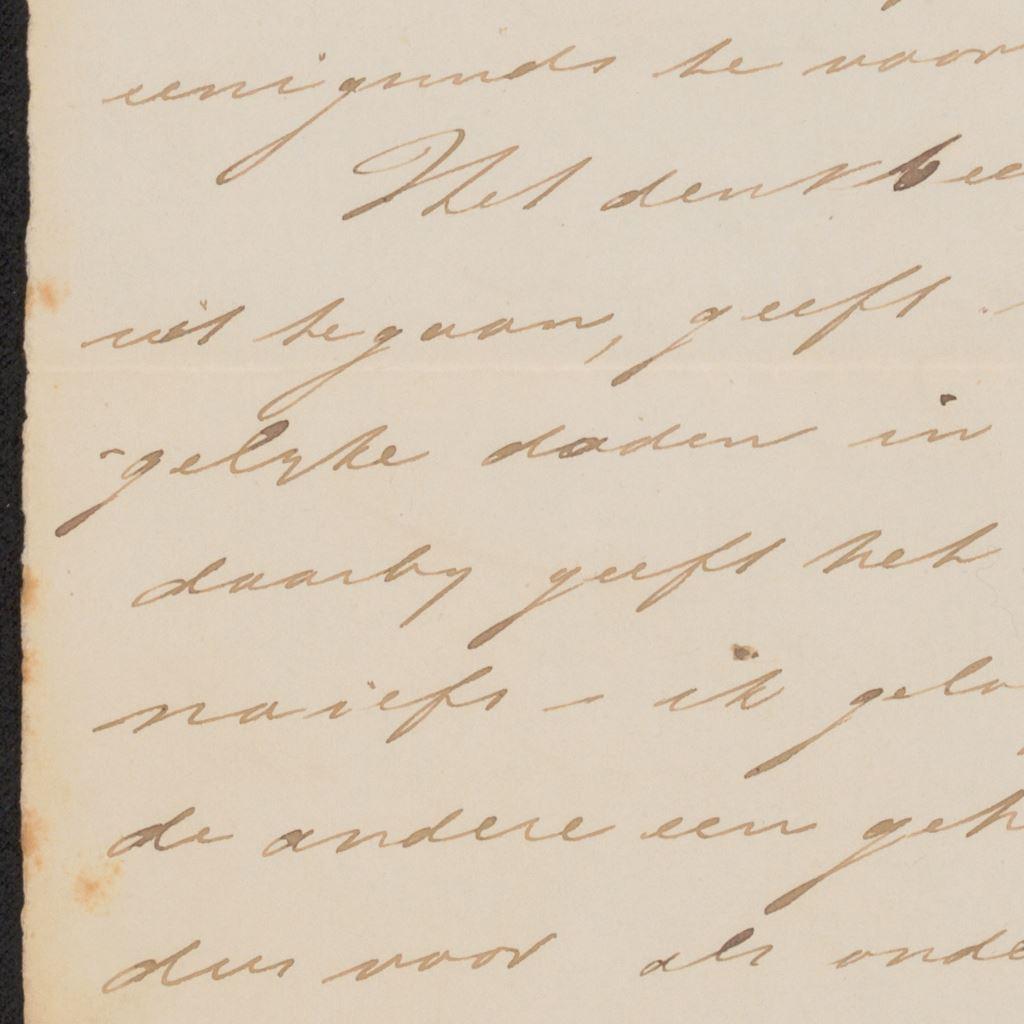 eenigzinds te voor
Het denkbee
uit te gaan, geeft
-gelyke daden in
daarby geeft het
naiefs - ik gelo
de andere een geh
dus voor als onde